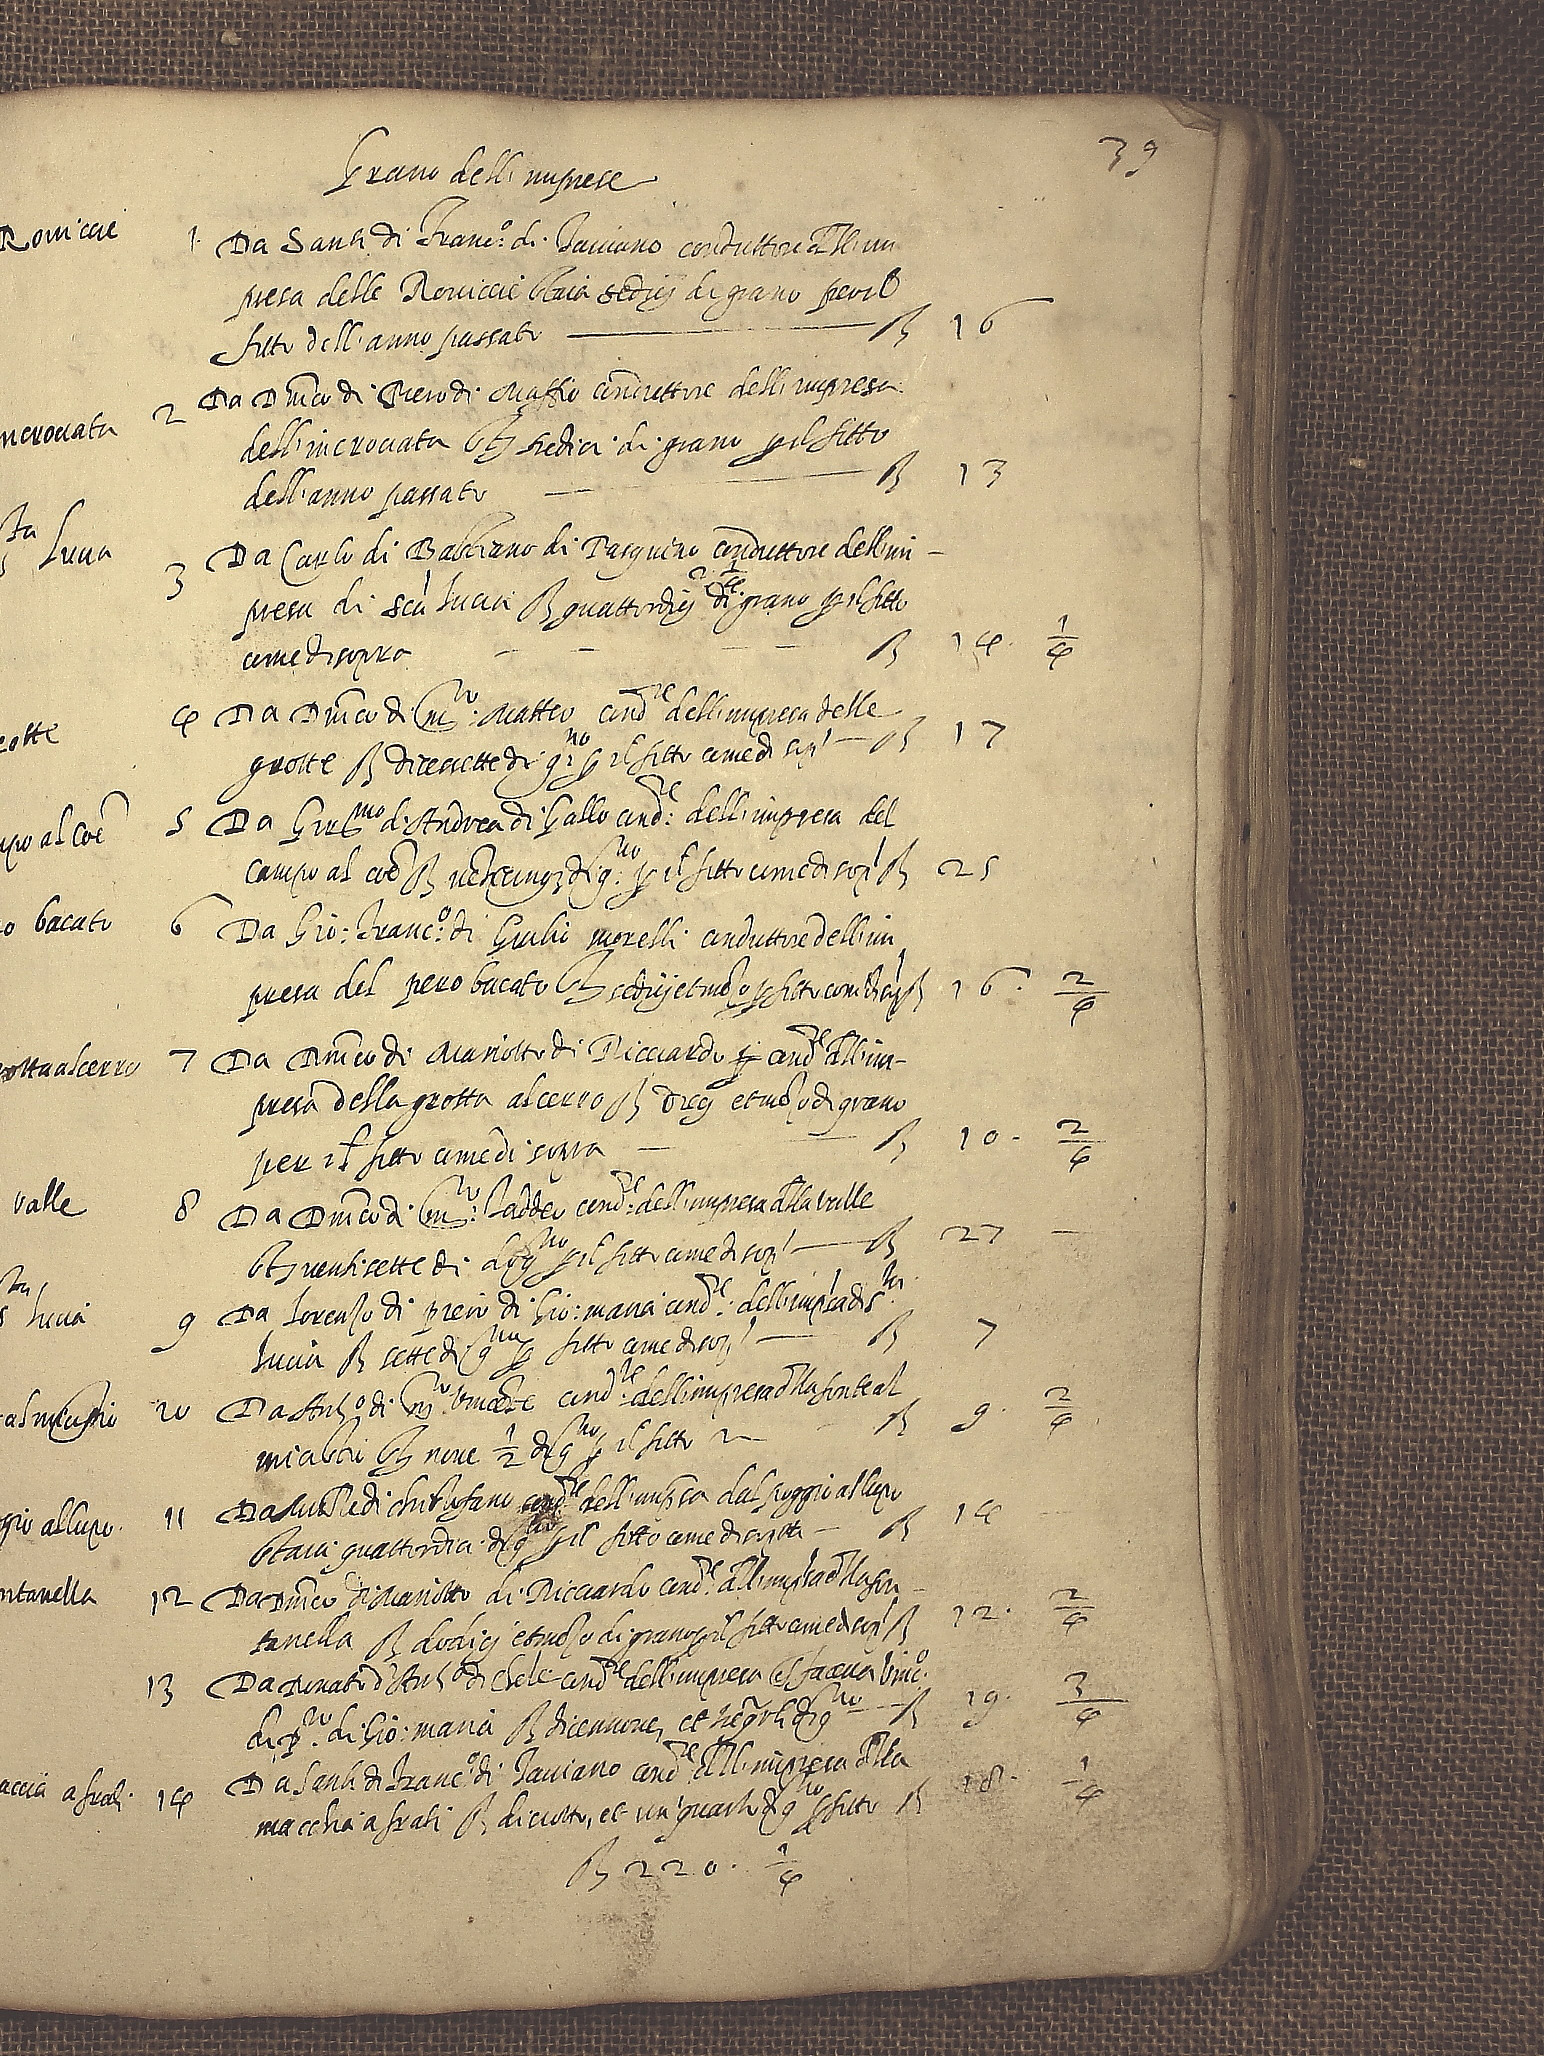 39
Grano dell'imprese
Roviccie
1. Da Santi di Franc.o di Taviano conduttore dell'im
presa delle Roviccie staia sedici di grano per il
fitto dell'anno passato — 16
incrociata
2 Da Dm.co di Piero di Maffio conduttore dell'impresa
dell'incrociata tredici di grano p il fitto
dell'anno passato — 13
sta Lucia
3 Da Carlo di Babbiano di Pasquino conduttore dell'im-
presa di sca Lucia quattordici 1/4 di grano p il fitto
come di sopra — 14. 1/4
grotte
4 Da Dm.co di m.o Matteo cond.re dell'impresa delle
grotte dicessette di g.no p il fitto come di sop.a — 17
campo al coe
5 Da Gir.mo di Andrea di Gallo cond.re dell'impresa del
campo al coe venticinq di g.no p il fitto come di sop.a 25
pero bacato
6 Da Gio: Franc.o di Giulio morelli conduttore dell'im
presa del pero bacato sedici et mezo p fitto come di sop.a 16. 2/4
grotta al cerro
7 Da Dm.co di Mariotto di Ricciardo cond.re dell'im-
presa della grotta al cerro dieci et mezo di grano
per il fitto come di sopra — 10. 2/4
valle
8 Da Dm.co di m.o Taddeo cond.re dell'impresa della valle
ventisette di g.no p il fitto come di sop.a — 27 —
sta Lucia
9 Da Lorenzo di piero di Gio: maria cond.re dell'impresa di s.ta
Lucia sette di g.no p fitto come di sop.a — 7
10 Da Ant.o di m.o cond.re dell'impresa della fonte al
none 1/2 di g.no p il fitto — 9. 2/4
poggio al lupo.
11 Da di cond.re dell'impresa del poggio al lupo
staia quattordici di g.no p il fitto come di sopra — 14 —
fontanella
12 Da Dm.co di Mariotto di Ricciardo cond.re dell'impresa della fon-
tanella dodici et mezo di grano p il fitto come di sop.a 12. 2/4
13 Da Donato d'Ant.o di cond.re dell'impresa
di p.o di Gio: maria dicennove, et tre quarti di g.no — 19. 3/4
macchia a frati.
14 Da Santi di Franc.o di Taviano cond.re dell'impresa della
macchia a frati diciotto, et un quarto di g.no p fitto 18. 1/4
220. 1/4